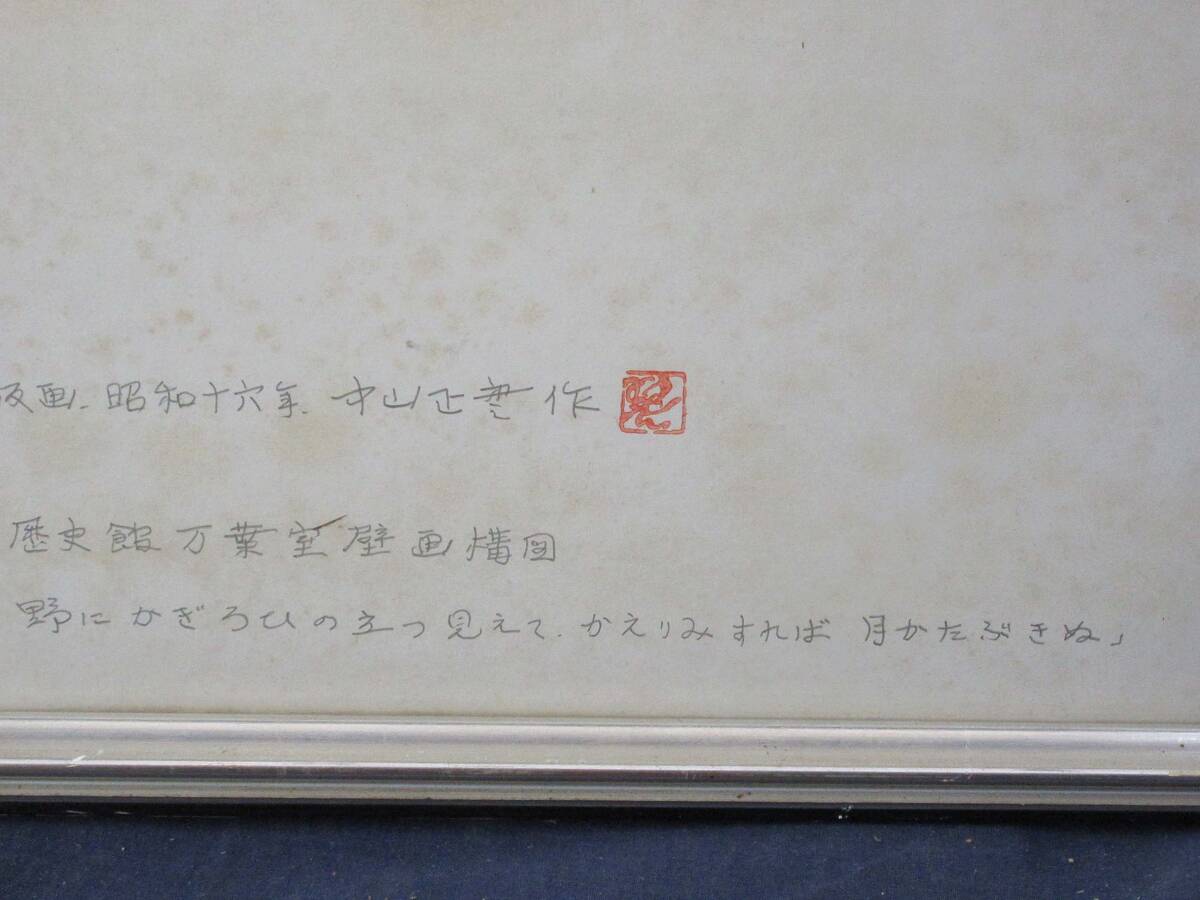 版画. 昭和十六年. 中山正彦作
歴史館万葉室壁画構図
野にかぎろひの立つ見えて. かえりみすれば 月かたぶきぬ」